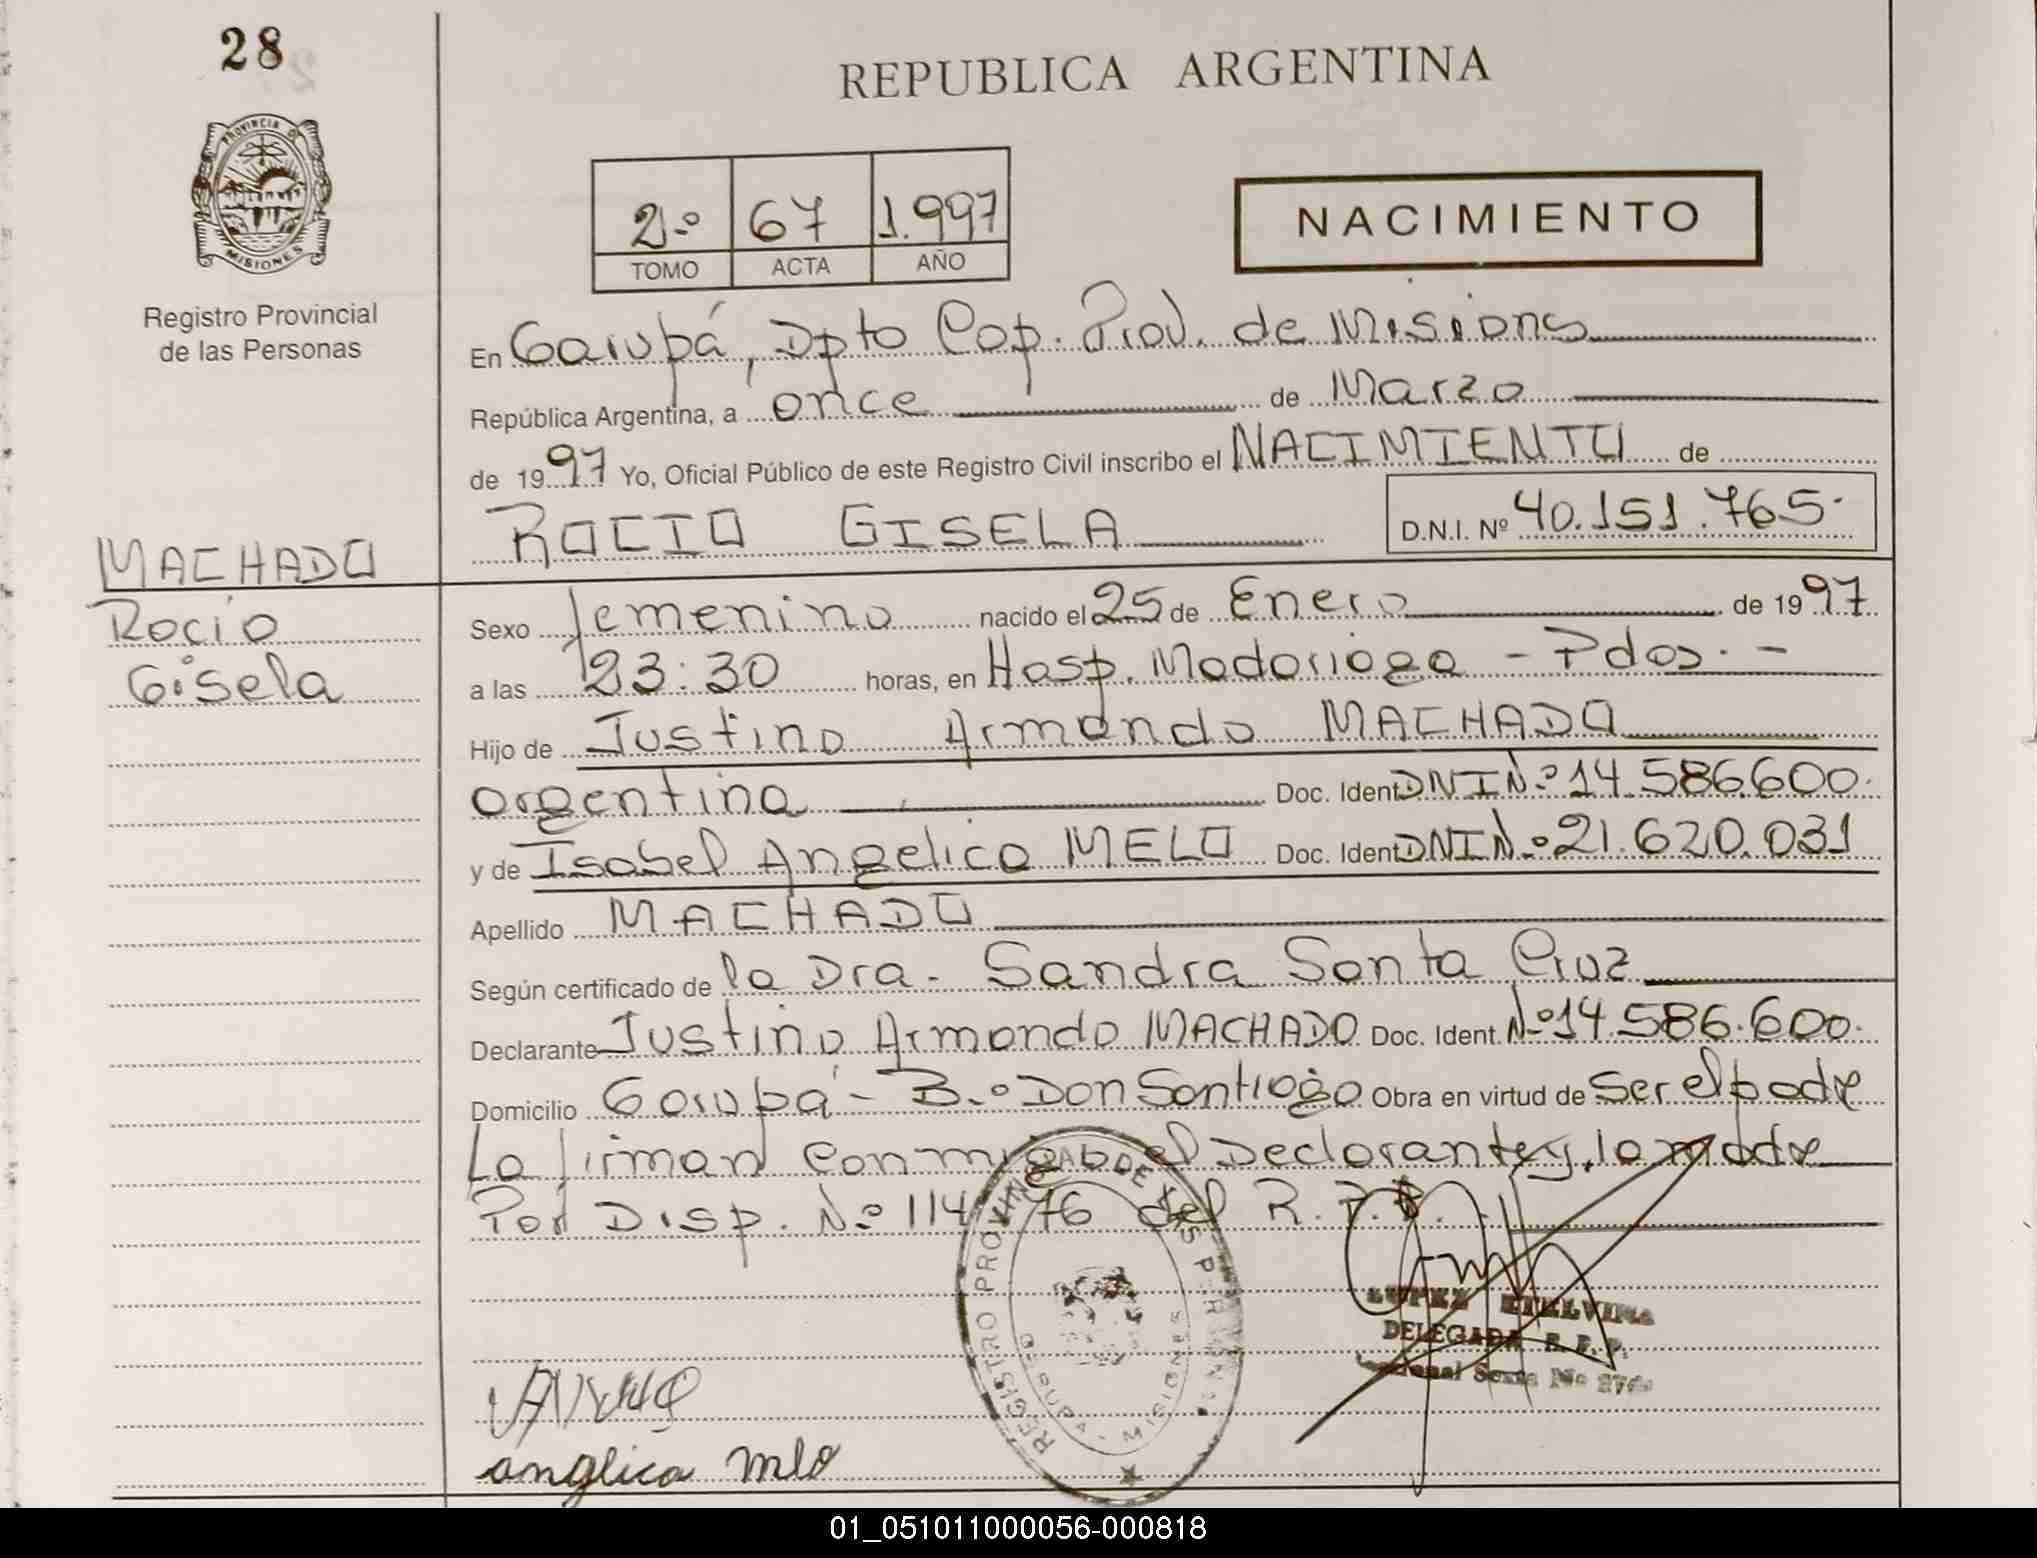 28
REPUBLICA ARGENTINA
PROVINCIA D
MISIONES
Registro Provincial
de las Personas
2.º 67 1.997
TOMO ACTA AÑO
NACIMIENTO
En Garupá, Dpto Cap. Prov. de Misiones
República Argentina, a once de Marzo
de 1997 Yo, Oficial Público de este Registro Civil inscribo el NACIMIENTO de
ROCIO GISELA D.N.I. Nº 40.151.765.
MACHADO
Rocio
Gisela
Sexo femenino nacido el 25 de Enero de 1997
a las 23:30 horas, en Hosp. Madariaga - Pdas. -
Hijo de Justino Armando MACHADO
argentina Doc. Ident DNI N.º 14.586.600.
y de Isabel Angelica MELO Doc. Ident DNI N.º 21.620.031
Apellido MACHADO
Según certificado de la Dra. Sandra Santa Cruz
Declarante Justino Armando MACHADO Doc. Ident. N.º 14.586.600.
Domicilio Garupá - B.º Don Santiago Obra en virtud de Ser el padre
La firman conmigo el Declarante y la madre
Por Disp. N.º 114/76 del R.P.P.
REGISTRO PROVINCIAL DE LAS PERSONAS
GARUPA - MISIONES
LOPEZ ETELVINA
DELEGADA R. P. P.
Sexta Nº
anglica mlo
01_051011000056-000818